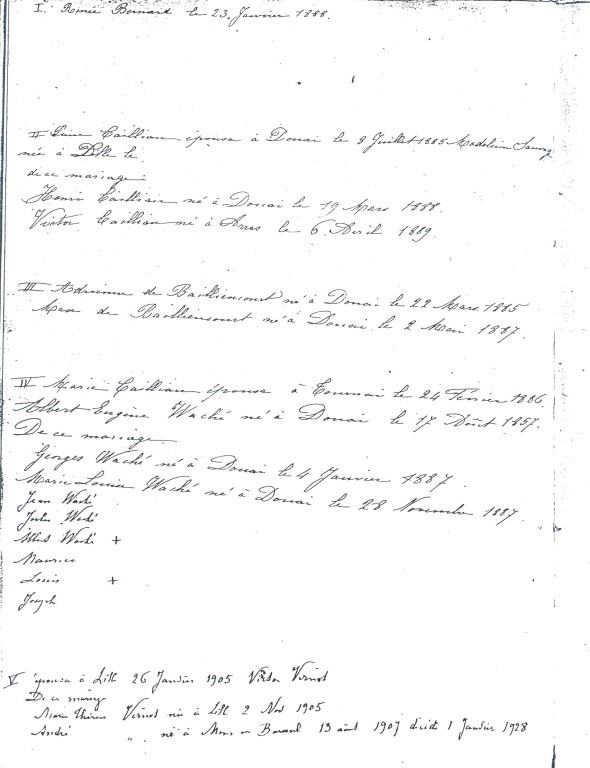 I. Renée Bernard le 23 Janvier 1888.
II Caillian épousa à Douai le 8 Juillet 1885 Madeleine
née à Lille le
de ce mariage:
Henri Cailliau né à Douai le 19 Mars 1888.
Victor Caillian né à Arras le 6 Avril 1889.
III Adrienne de Baillencourt né à Douai le 22 Mars 1885
Max de Baillencourt né à Douai le 2 Mai 1887.
IV Marie Caillian épousa à Tournai le 24 Février 1886.
Albert Eugène Waché né à Douai le 17 Août 1857.
De ce mariage
Georges Waché né à Douai le 4 Janvier 1887.
Marie Louise Waché né à Douai le 28 Novembre 1887.
Jean Waché
Jules Waché
Albert Waché +
Maurice
Louis +
Joseph
V épousa à Lille 26 Janvier 1905 Victor Vernot
De ce mariage
Marie Thérèse Vernot née à Lille 2 Nov 1905
André " né à Mons en Baroeul 13 août 1907 décédé 1 Janvier 1928